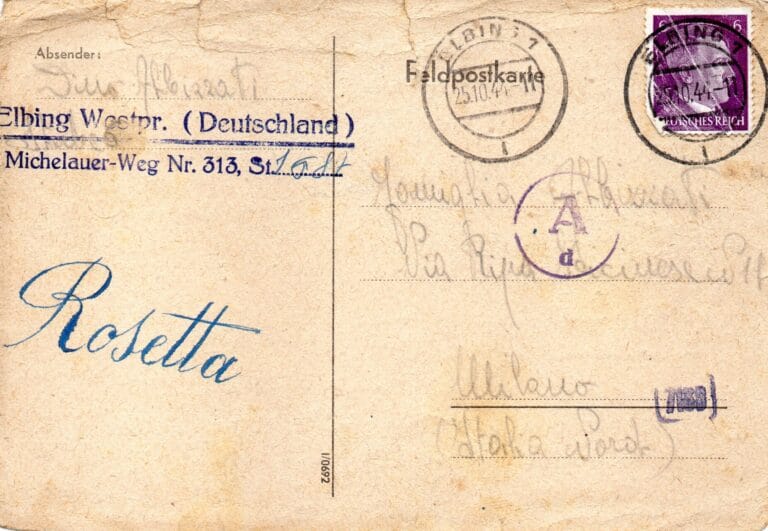 Absender:
Dino Albizzati
Elbing Westpr. (Deutschland)
Michelauer-Weg Nr. 313, St.
Rosetta
I/0692
Feldpostkarte
ELBING 1
25.10.44.-11
i
6 6
DEUTSCHES REICH
ELBING 1
25.10.44.-11
i
Famiglia Albizzati
Via Ripa Ticinese 17
A
d
Milano
(Italia Nord)